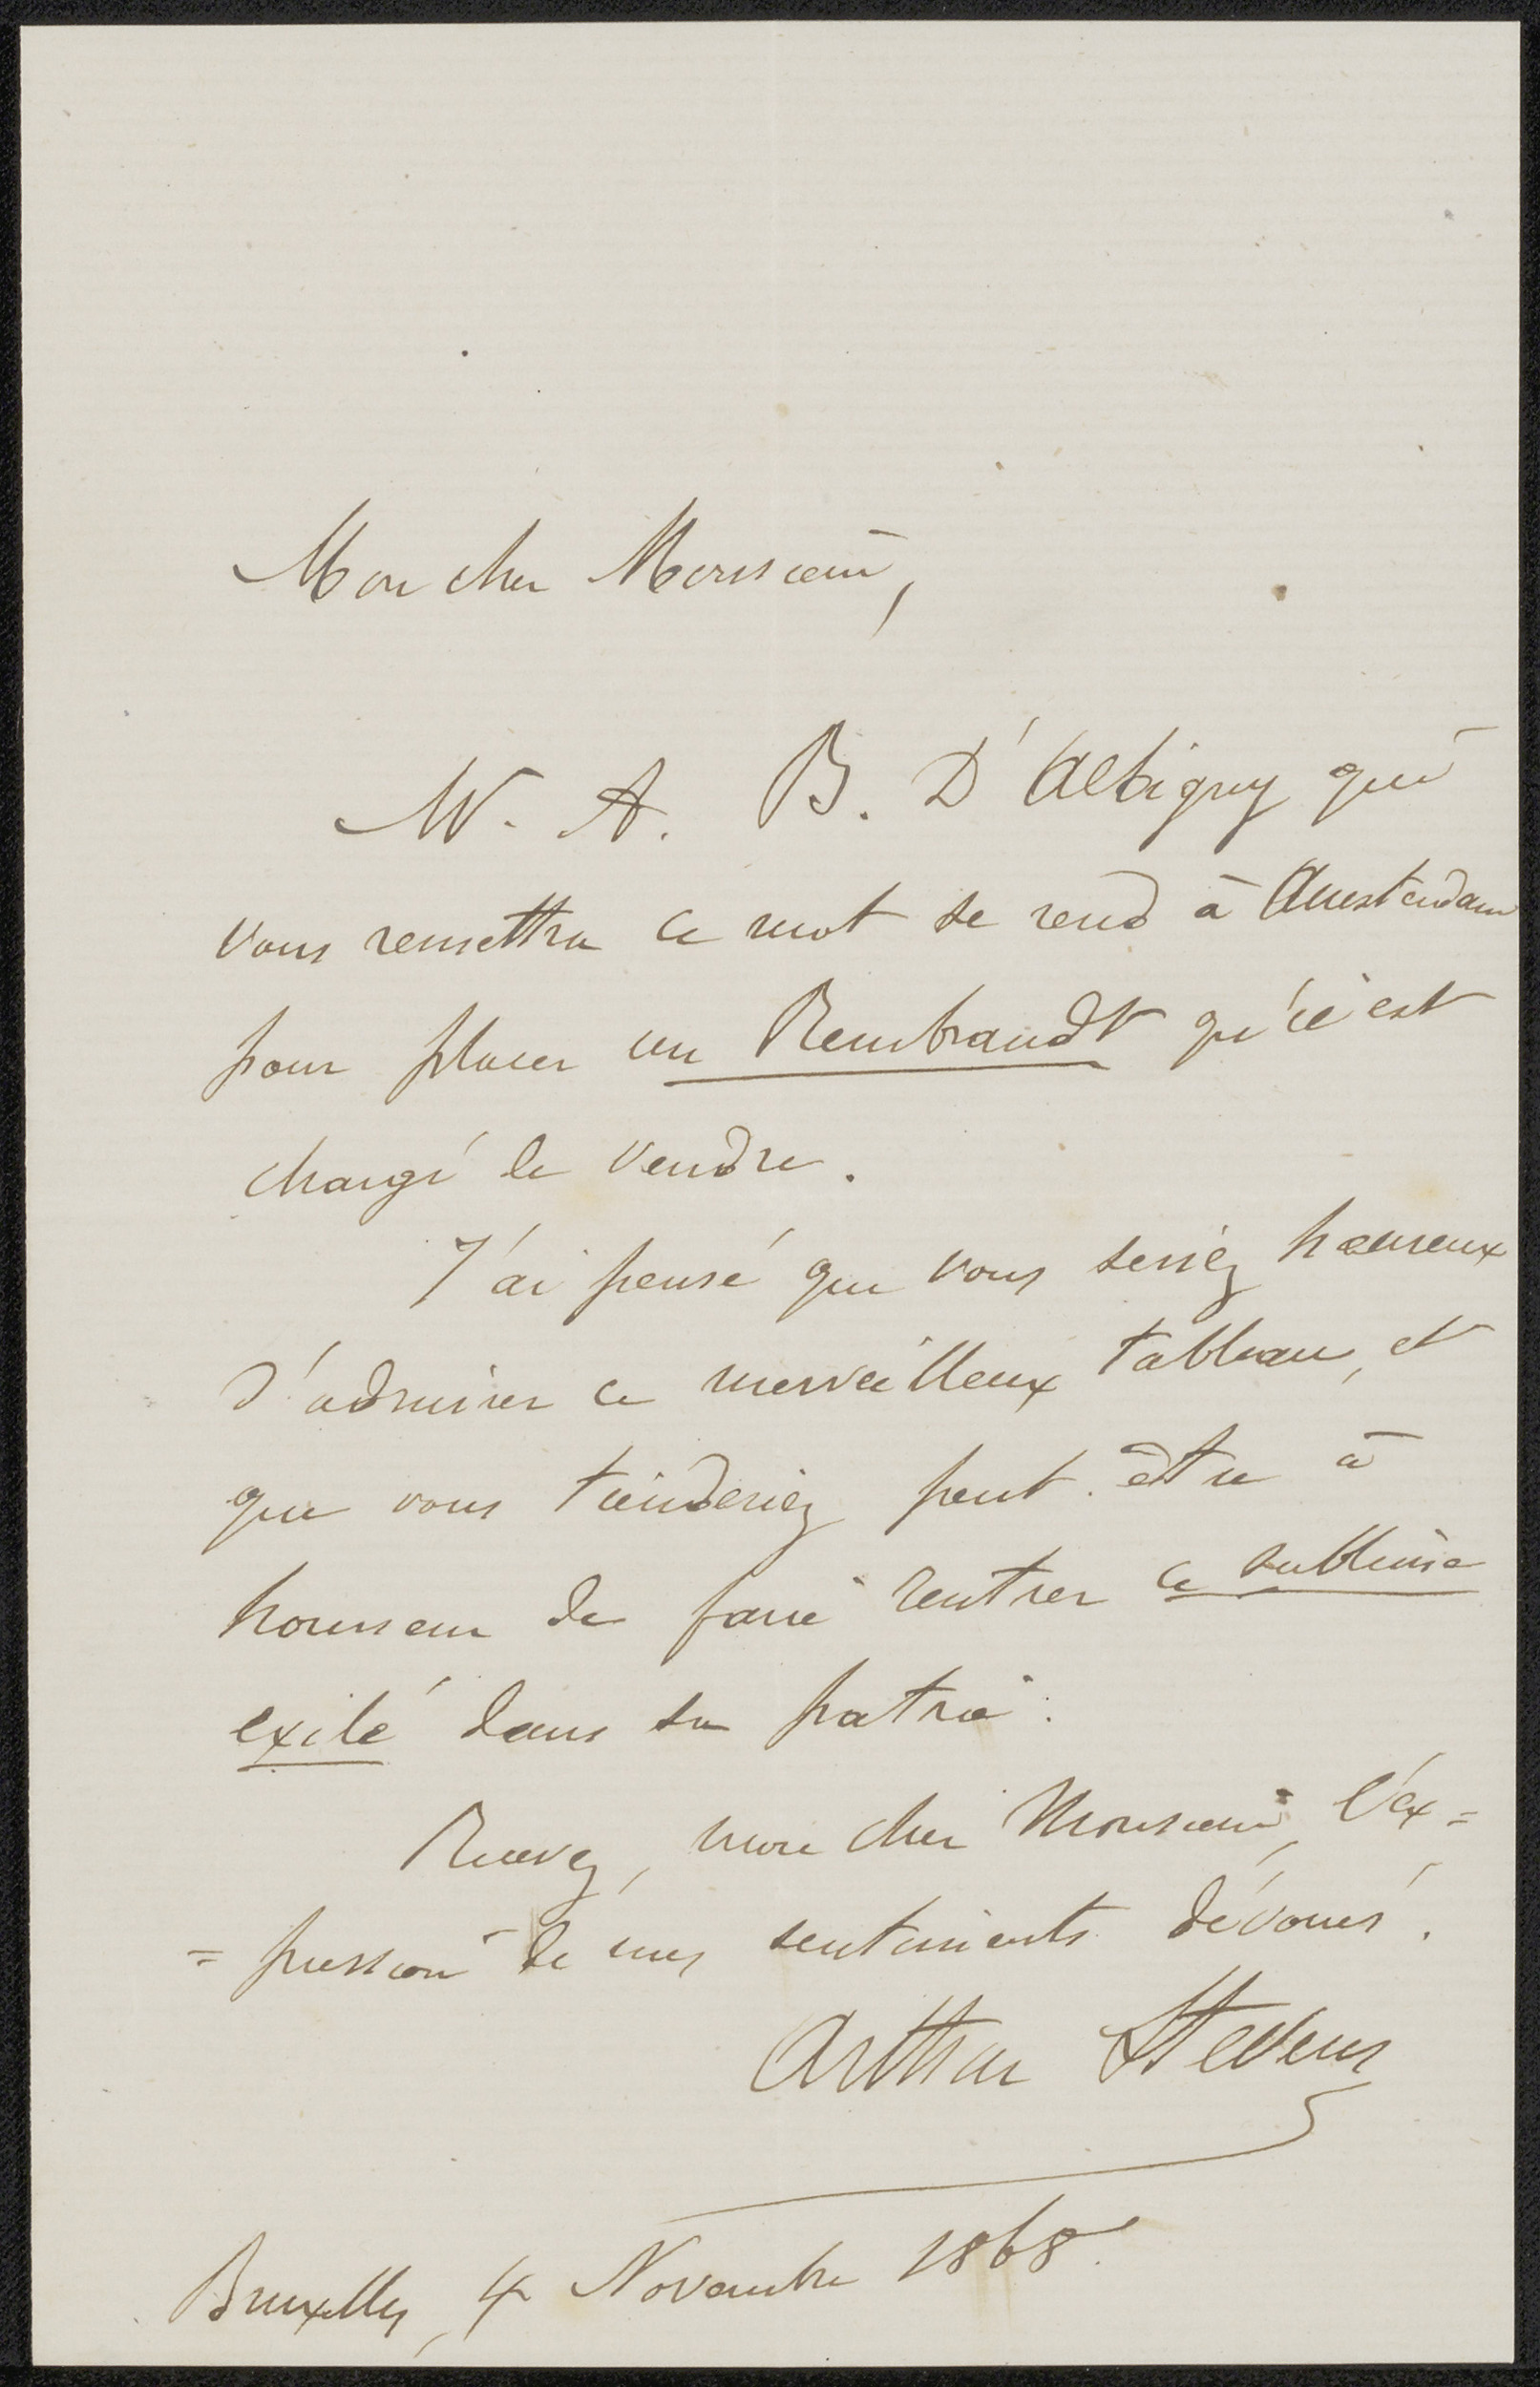 Mon cher Monsieur,
M. A. B. D'Albigny qui
vous remettra ce mot se rend à Amsterdam
pour placer un Rembrandt qu'il est
chargé de vendre.
J'ai pensé que vous seriez heureux
d'admirer ce merveilleux tableau, et
que vous tiendriez peut-être à
honneur de faire rentrer ce sublime
exilé dans sa patrie.
Recevez, mon cher Monsieur, l'ex=
=pression de mes sentiments dévoués.
Arthur Stevens
Bruxelles, 4 Novembre 1868.